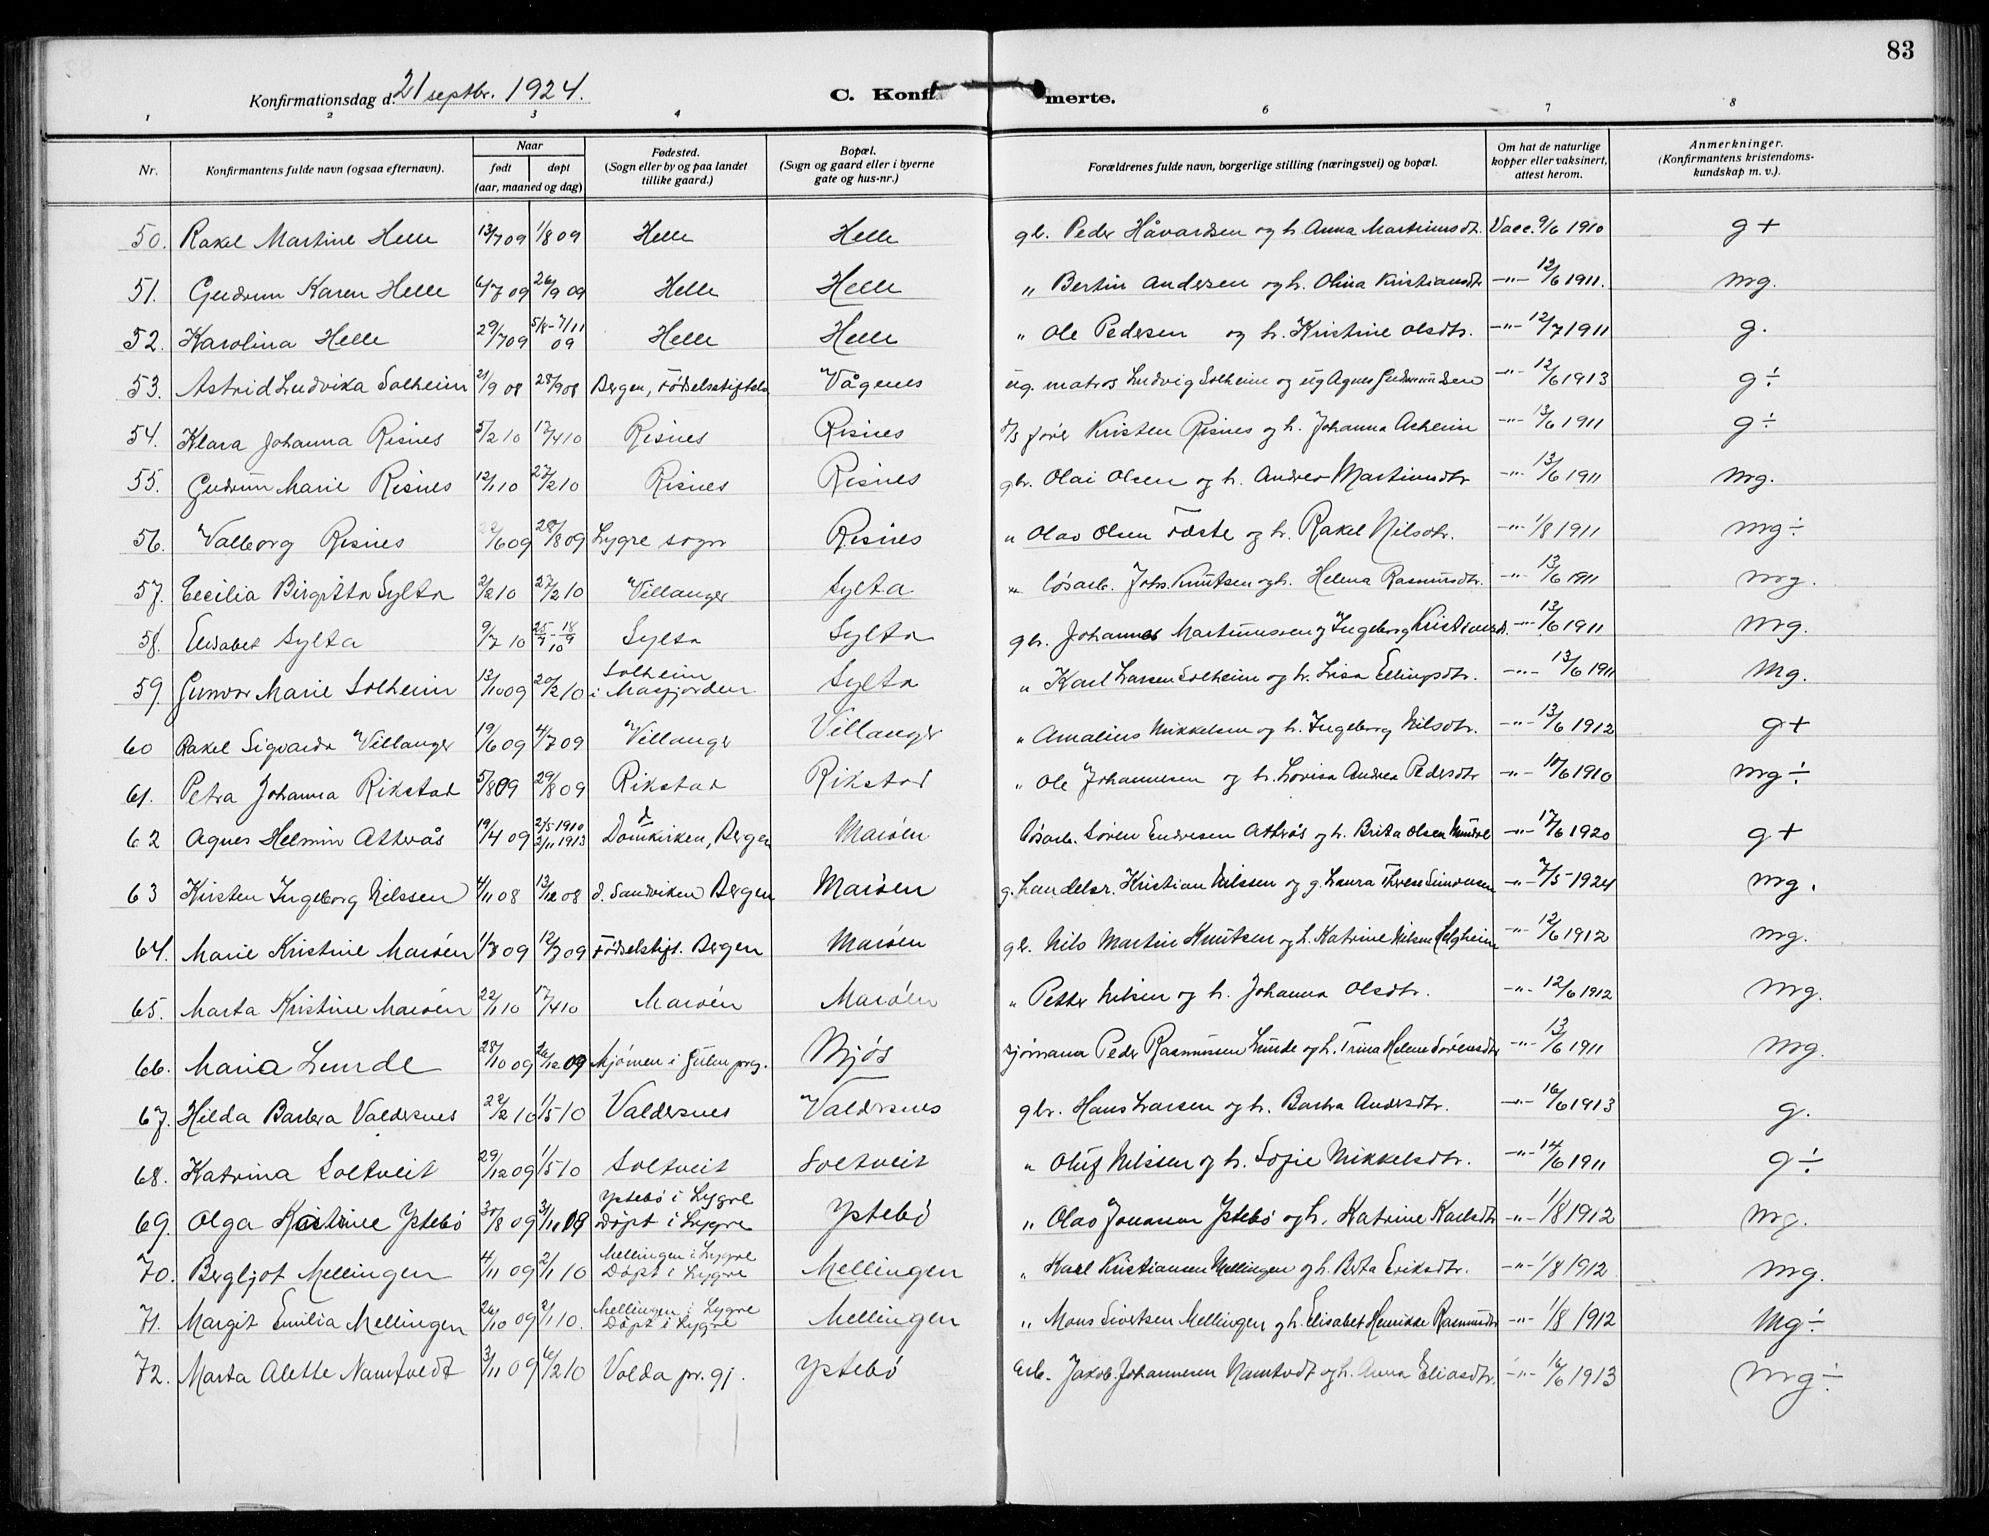 83
Konfirmationsdag d. 21 septbr. 1924.
C. Konf merte.
1 2 3 4 6 7 8
Nr. Konfirmantens fulde navn (ogsaa efternavn). Naar født døpt (aar, maaned og dag) Fødested. (Sogn eller by og paa landet tillike gaard.) Bopæl. (Sogn og gaard eller i byerne gate og hus-nr.) Forældrenes fulde navn, borgerlige stilling (næringsvei) og bopæl. Om hat de naturlige kopper eller vaksinert, attest herom. Anmerkninger. (Konfirmantens kristendoms-kundskap m. v.).
50. Rakel Martine Helle 13/7 09 1/8 09 Helle Helle gbr. Peder Håvardsen og h. Anna Martinusdt. Vacc. 9/6 1910 g+
51. Gudrun Karen Helle 6/7 09 26/9 09 Helle Helle " Bertin Andersen og h. Olina Kristiansdt -"- 12/6 1911. mg.
52. Karolina Helle 29/7 09 5/8 - 7/11 09 Helle Helle " Ole Pedersen og h. Kristine Olsdtr. -"- 12/7 1911 g.
53. Astrid Ludvika Solheim 21/9 08 28/9 08 Bergen, Fødselsstiftels Vågenes ug. matros Ludvig Solheim og ug Agnes Gudmundsen -"- 12/6 1913 g÷
54. Klara Johanna Risnes 5/2 10 17/4 10 Risnes Risnes Kristen Risnes og h. Johanna Asheim -"- 13/6 1911 g÷
55. Gudrun Marie Risnes 12/1 10 27/2 10 Risnes Risnes gbr. Olai Olsen og h. Andrea Martinusdtr -"- 13/6 1911 mg.
56. Valborg Risnes 22/6 09 28/8 09 Lygre sogn Risnes " Olav Olsen Fæste og h. Rakel Nilsdtr. -"- 1/8 1911 mg÷
57. Cecilia Birgitta Sylta 2/2 10 27/2 10 Villanger Sylta " løsarb. Johs. Knutsen og h. Helena Rasmusdtr. -"- 13/6 1911 mg.
58. Elisabet Sylta 9/7 10 25/7 - 18/9 10 Sylta Sylta gbr. Johannes Martinussen og Ingeborg Kristiansdt. -"- 13/6 1911 mg.
59. Gunvor Marie Solheim 13/10 09 20/2 10 Solheim i Masfjorden Sylta " Karl Larsen Solheim og h. Lisa Ellingsdtr. -"- 13/6 1911 mg.
60 Rakel Sigvarda Villanger 19/6 09 4/7 09 Villanger Villanger " Amalius Mikkelsen og h. Ingeborg Nilsdtr. -"- 13/6 1912 g+
61. Petra Johanna Rikstad 5/8 09 29/8 09 Rikstad Rikstad " Ole Johannesen og h. Lovisa Andrea Pedersdtr -"- 11/6 1910 mg÷
62 Agnes Helmin Atterås 19/4 09 2/5 1910 2/11 1913 Domkirken, Bergen Marøen løsarb. Søren Endresen Atterås og h. Brita Olsen -"- 17/6 1920 g+
63 Kirsten Ingeborg Nilssen 4/11 08 13/12 08 d. Sandviken Bergen Marøen g. handelsr. Kristian Nilssen og g. Laura Therese -"- 7/5 - 1924 mg.
64. Marie Kristine Marøen 1/7 09 12/7 09 Fødselstift. Bergen Marøen gb. Nils Martin Knutsen og h. Katrine Nilsen Helgheim -"- 12/6 1912 mg.
65. Marta Kristine Marøen 22/1 10 17/4 10 Marøen Marøen " Petter Nilsen og h. Johanna Olsdtr. -"- 12/6 1912 mg.
66. Maria Lunde 28/10 09 26/12 09 Mjømen i Gulen preg. Mjøs sjømann Peder Rasmussen Lunde og h. Trina Helene Sørensdtr -"- 13/6 1911 mg.
67. Hilda Barbra Valdersnes 22/2 10 1/5 10 Valdersnes Valdersnes gbr. Hans Larsen og h. Barbra Andersdtr. -"- 16/6 1913 g.
68. Katrina Soltveit 29/12 09 1/5 10 Soltveit Soltveit " Oluf Nilssen og h. Sofie Mikkelsdtr. -"- 14/6 1911 g÷
69. Olga Kristine Ystebø 30/8 09 31/10 09 Ystebø i Lygre Døpt i Lygre Ystebø " Olav Jonassen Ystebø og h. Katrine Karlsdtr -"- 1/8 1912 mg.
70. Bergljot Mellingen 4/11 09 2/1 10 Mellingen i Lygre Døpt i Lygre Mellingen " Karl Kristiansen Mellingen og h. Berta Eriksdtr. -"- 1/8 1912 mg.
71. Margit Emilia Mellingen 26/10 09 2/1 10. Mellingen i Lygre Døpt i Lygre Mellingen " Mons Sivertsen Mellingen og h. Elisabet Henrikke Rasmusdtr -"- 1/8 1912 mg÷
72. Marta Alette Namtvedt 3/11 09 6/2 10 Volda pr. gj. Ystebø arb. Jakob Johannesen Namtvedt og h. Anna Eliasdtr. -"- 16/6 1913 mg÷